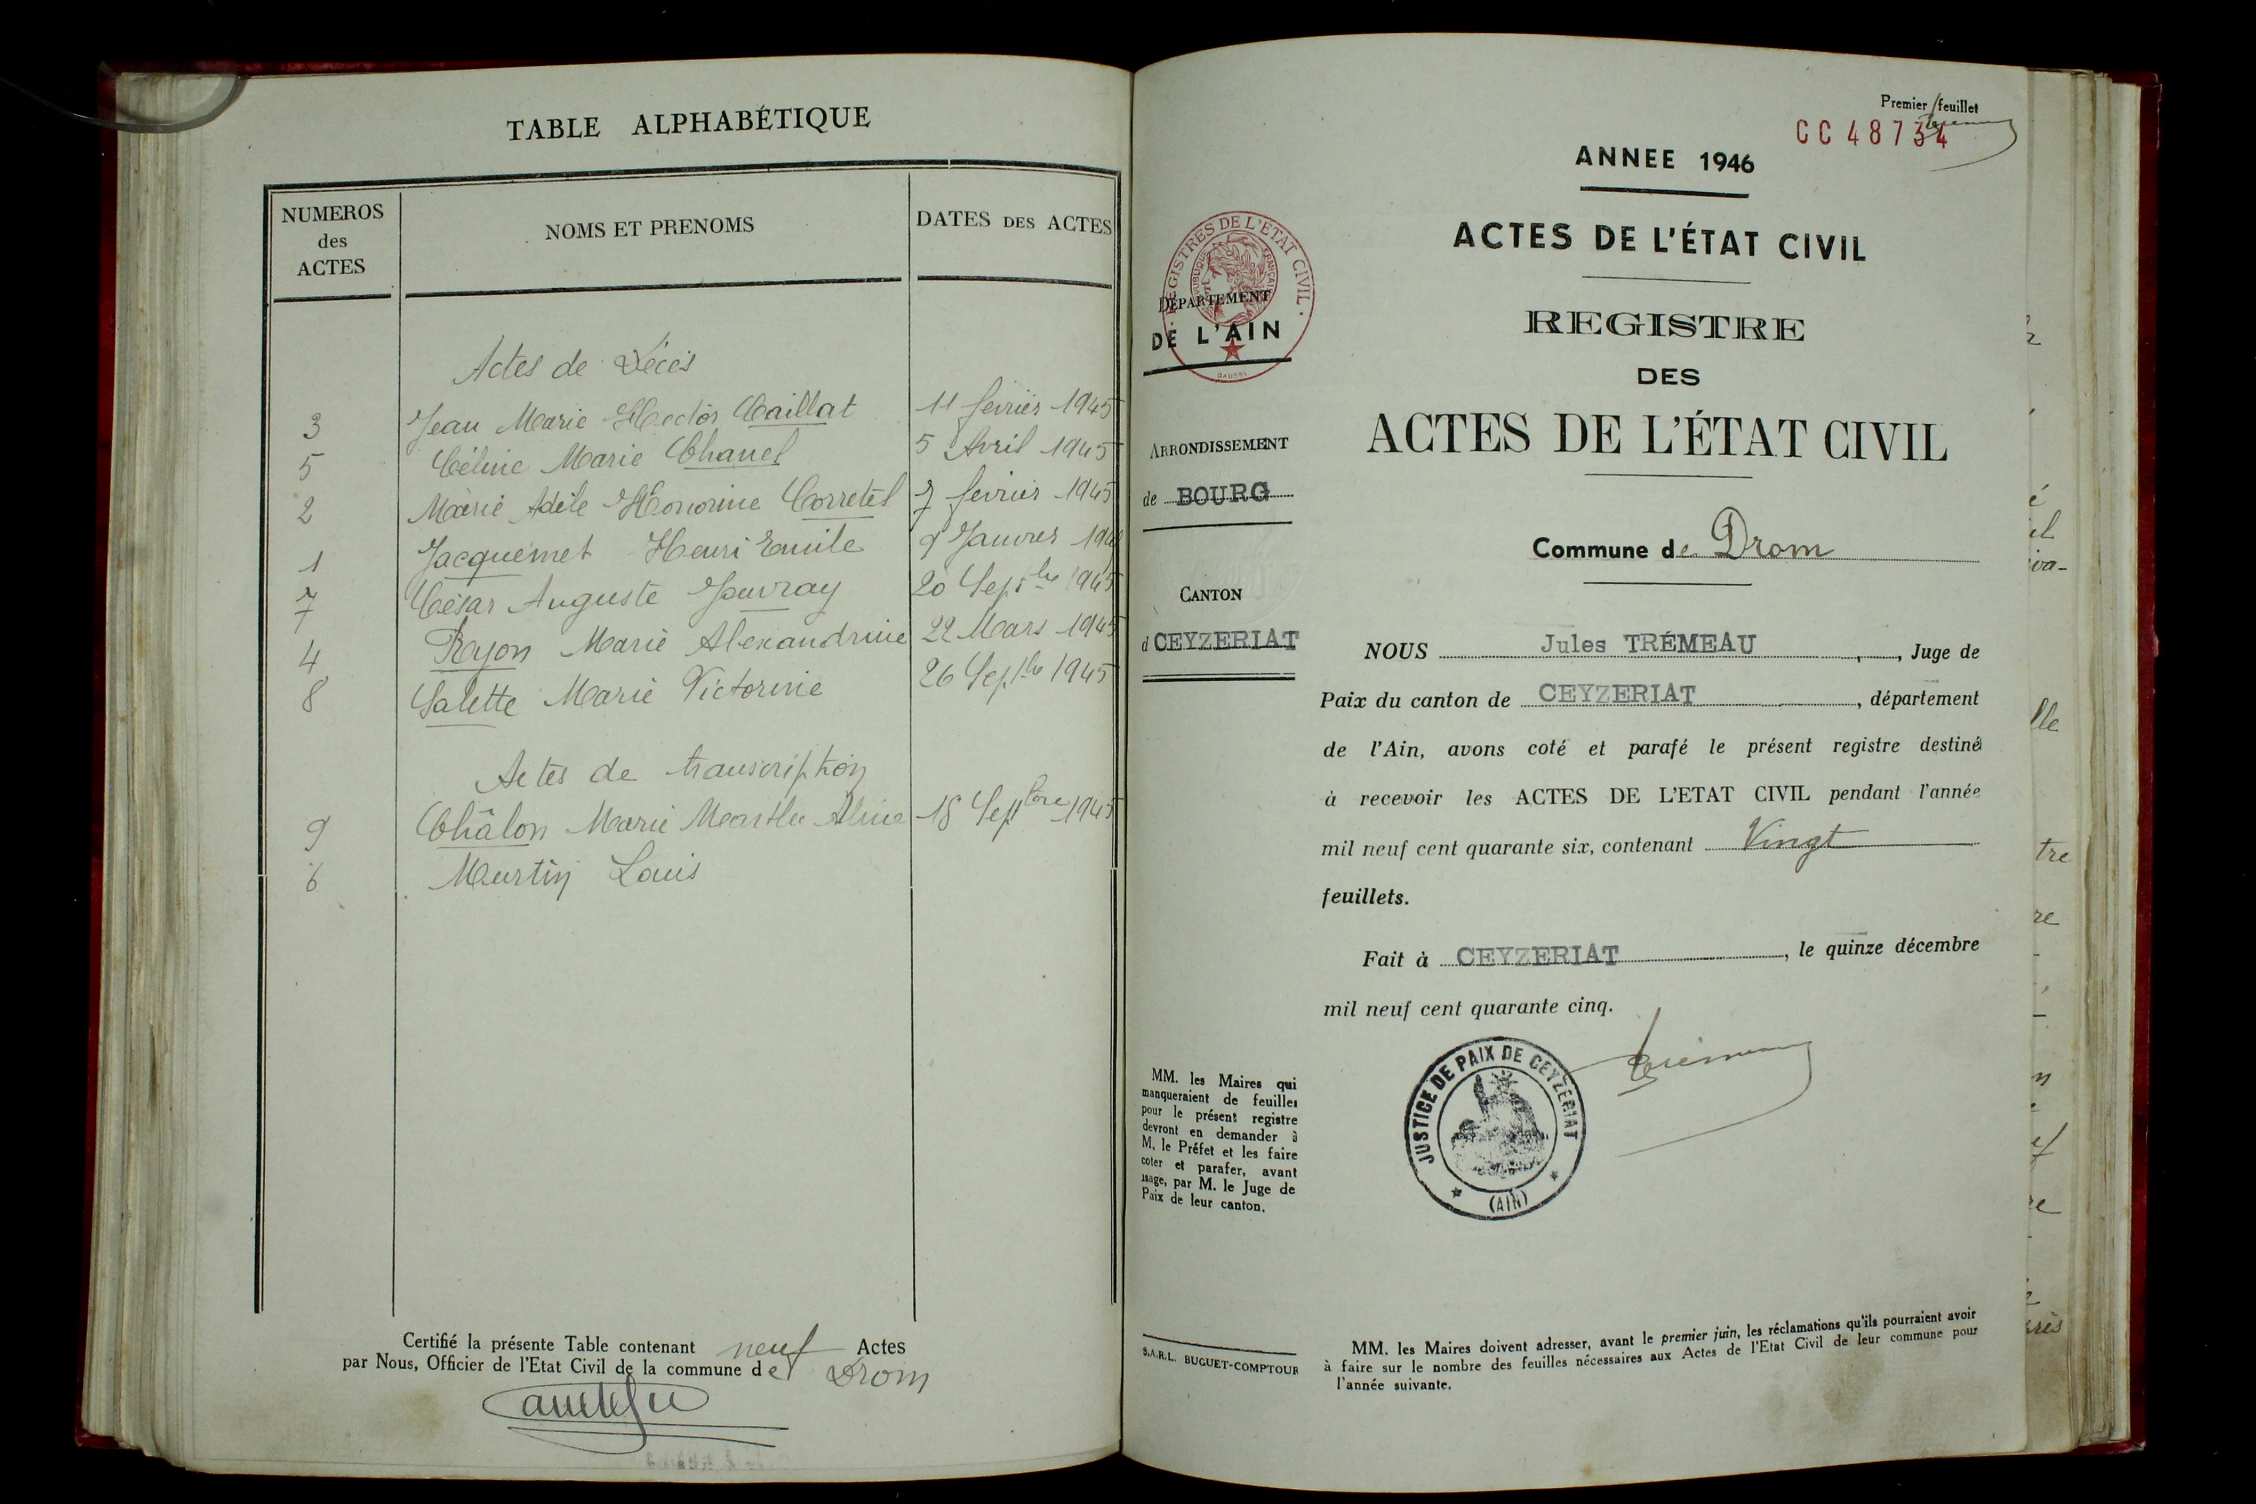 TABLE ALPHABÉTIQUE
NUMEROS des ACTES
NOMS ET PRENOMS
DATES DES ACTES
Actes de Décès
3 Jean Marie Hector Caillat 11 février 1945
5 Céline Marie Chanel 5 Avril 1945
2 Marie Adèle Honorine Corretel 7 février 1945
1 Jacquemet Henri Emile 9 Janvier
7 César Auguste Jouvray 20 Septbre 1945
4 Rayon Marie Alexandrine 22 Mars 1945
8 Salette Marie Victorine 26 Septbre 1945
Actes de transcription
9 Châlon Marie Aline 18 Septbre 1945
6 Martin Louis
Certifié la présente Table contenant neuf Actes
par Nous, Officier de l'Etat Civil de la commune de Drom
Premier feuillet
CC 48734
ANNEE 1946
ACTES DE L'ÉTAT CIVIL
REGISTRE
DES
ACTES DE L'ÉTAT CIVIL
Commune de Drom
REGISTRES DE L'ETAT CIVIL
RÉPUBLIQUE FRANÇAISE
DÉPARTEMENT
DE L'AIN
ARRONDISSEMENT
de BOURG
CANTON
d CEYZERIAT
NOUS Jules TRÉMEAU, Juge de
Paix du canton de CEYZERIAT, département
de l'Ain, avons coté et parafé le présent registre destiné
à recevoir les ACTES DE L'ETAT CIVIL pendant l'année
mil neuf cent quarante six, contenant Vingt
feuillets.
Fait à CEYZERIAT, le quinze décembre
mil neuf cent quarante cinq.
JUSTICE DE PAIX DE CEYZERIAT
(AIN)
MM. les Maires qui
manqueraient de feuilles
pour le présent registre
devront en demander à
M. le Préfet et les faire
coter et parafer, avant
usage, par M. le Juge de
Paix de leur canton.
S.A.R.L. BUGUET-COMPTOUR
MM. les Maires doivent adresser, avant le premier juin, les réclamations qu'ils pourraient avoir
à faire sur le nombre des feuilles nécessaires aux Actes de l'Etat Civil de leur commune pour
l'année suivante.